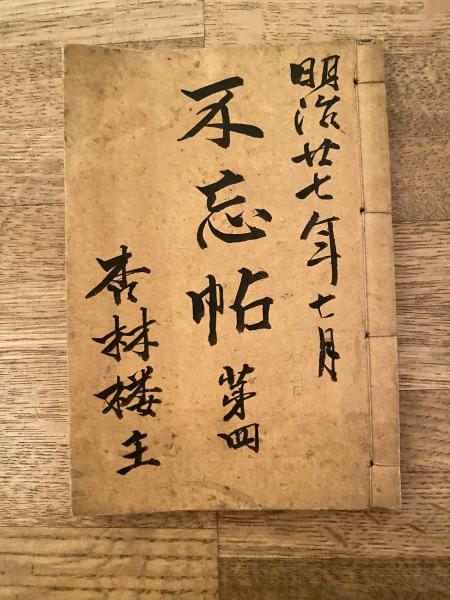 明治廿七年七月
不忘帖
第四
杏林楼主